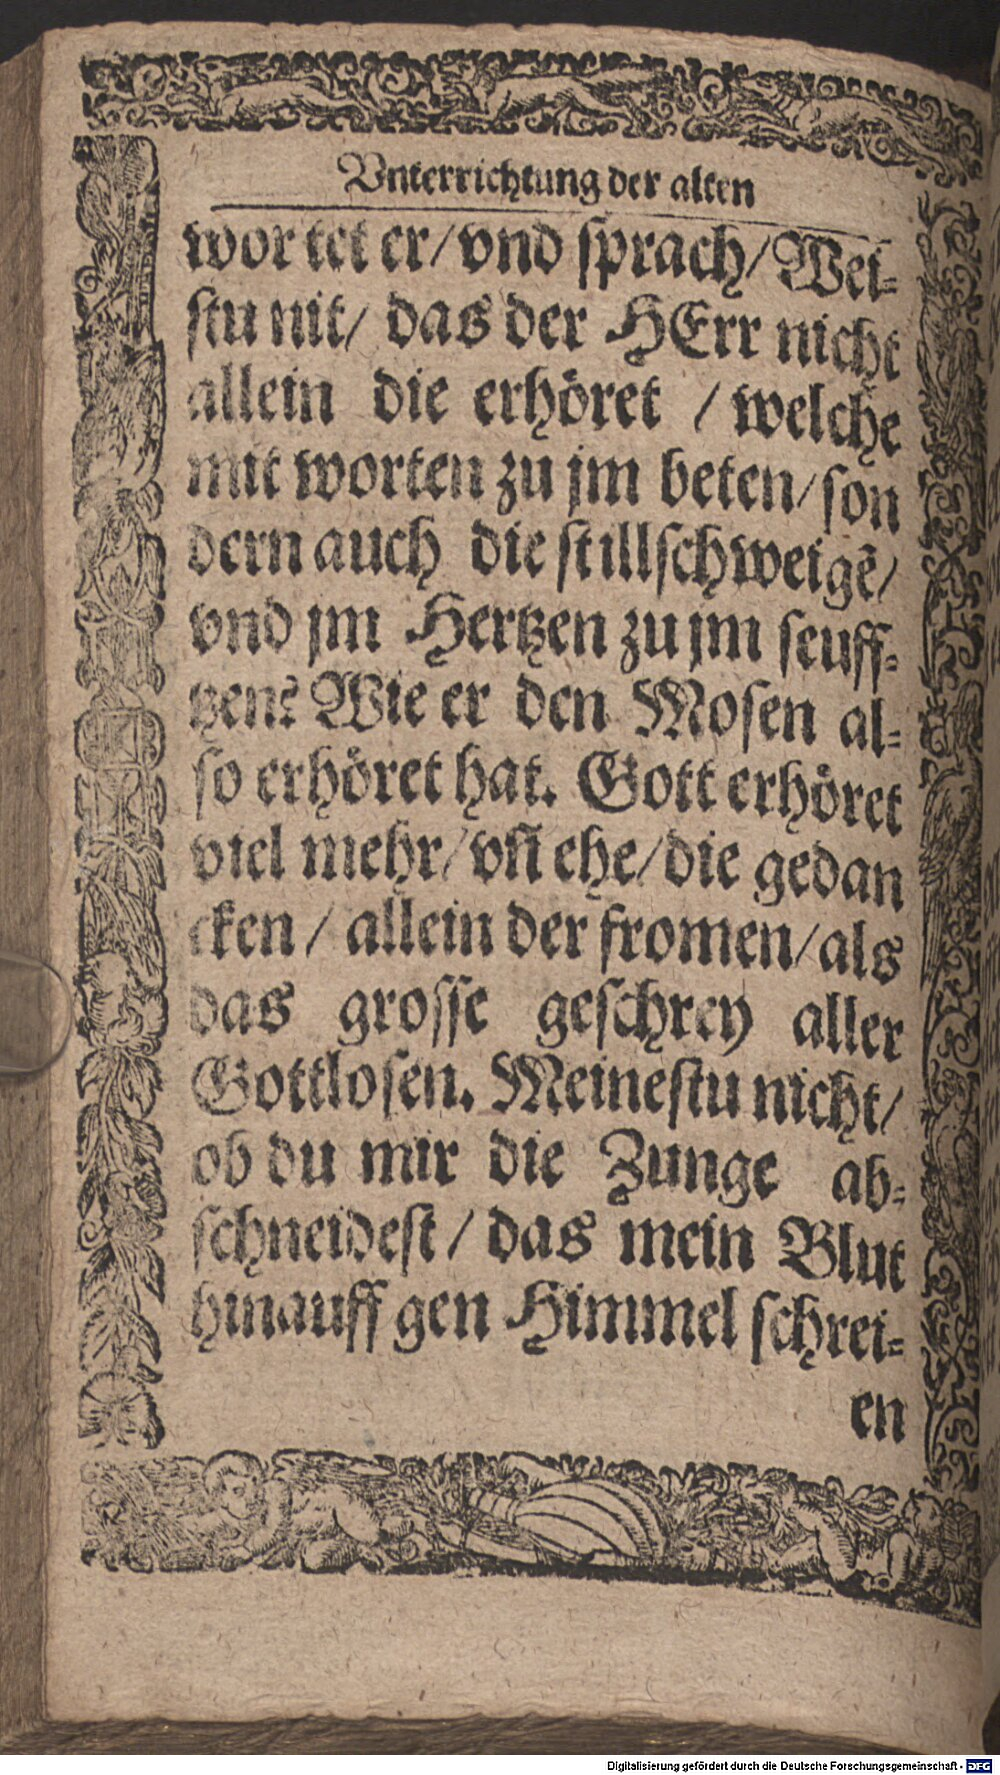 Vnterrichtung der alten
wortet er/ vnd sprach/ Wei-
stu nit/ das der HErr nicht
allein die erhöret / welche
mit worten zu jm beten/ son
dern auch die stillschweigẽ/
vnd jm Hertzen zu jm seuff-
tzen? Wie er den Mosen al-
so erhöret hat. Gott erhöret
viel mehr/ vñ ehe/ die gedan
cken / allein der fromen/ als
das grosse geschrey aller
Gottlosen. Meinestu nicht/
ob du mir die Zunge ab-
schneidest / das mein Blut
hinauff gen Himmel schrei-
en
Digitalisierung gefördert durch die Deutsche Forschungsgemeinschaft - DFG